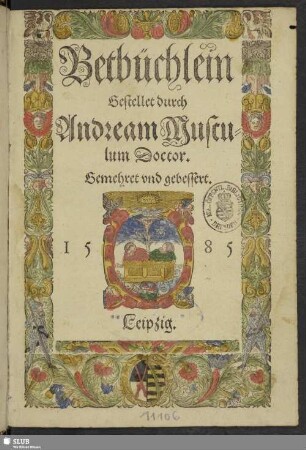 Betbüchlein
Gestellet durch
Andream Muscu-
lum Doctor.
Gemehret vnd gebessert.
15 85
Leipzig.
11106
SLUB